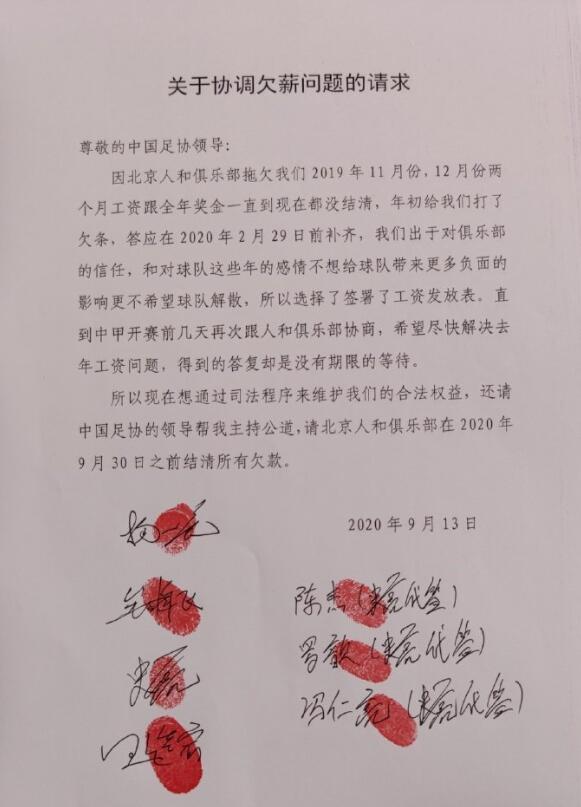 关于协调欠薪问题的请求
尊敬的中国足协领导:
因北京人和俱乐部拖欠我们2019年11月份,12月份两
个月工资跟全年奖金一直到现在都没结清,年初给我们打了
欠条,答应在2020年2月29日前补齐,我们出于对俱乐部
的信任,和对球队这些年的感情不想给球队带来更多负面的
影响更不希望球队解散,所以选择了签署了工资发放表。直
到中甲开赛前几天再次跟人和俱乐部协商,希望尽快解决去
年工资问题,得到的答复却是没有期限的等待。
所以现在想通过司法程序来维护我们的合法权益,还请
中国足协的领导帮我主持公道,请北京人和俱乐部在2020年
9月30日之前结清所有欠款。
2020年9月13日
陈杰(史亮代签)
罗歆(史亮代签)
史亮
冯仁亮(史亮代签)